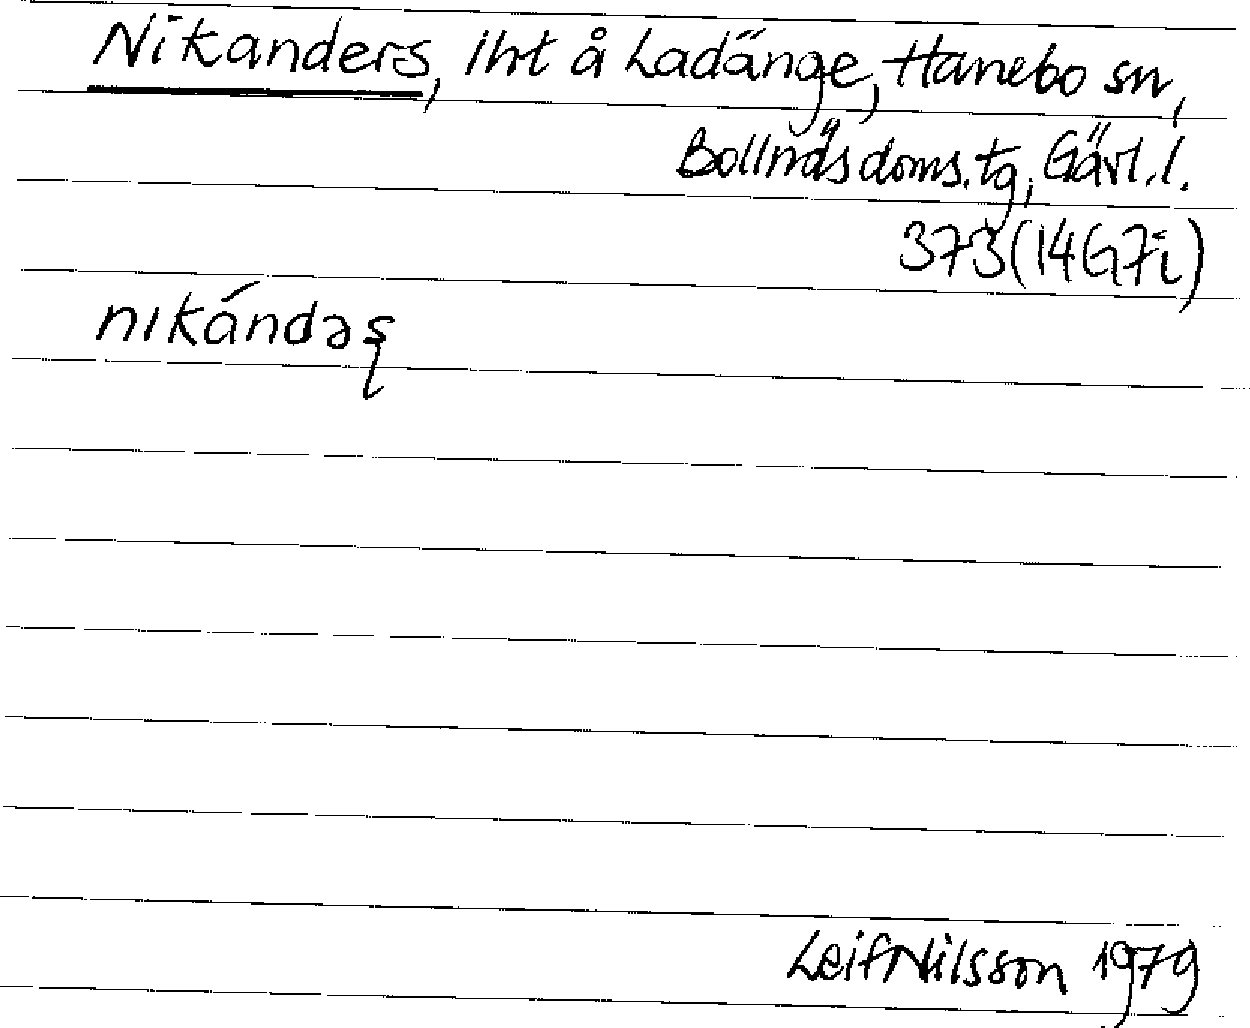 Nikanders, iht å Ladänge, Hanebo sn,
Bollnäs doms.tg, Gävl.l.
373 (14G7i)
nikándəʂ
Leif Nilsson 1979